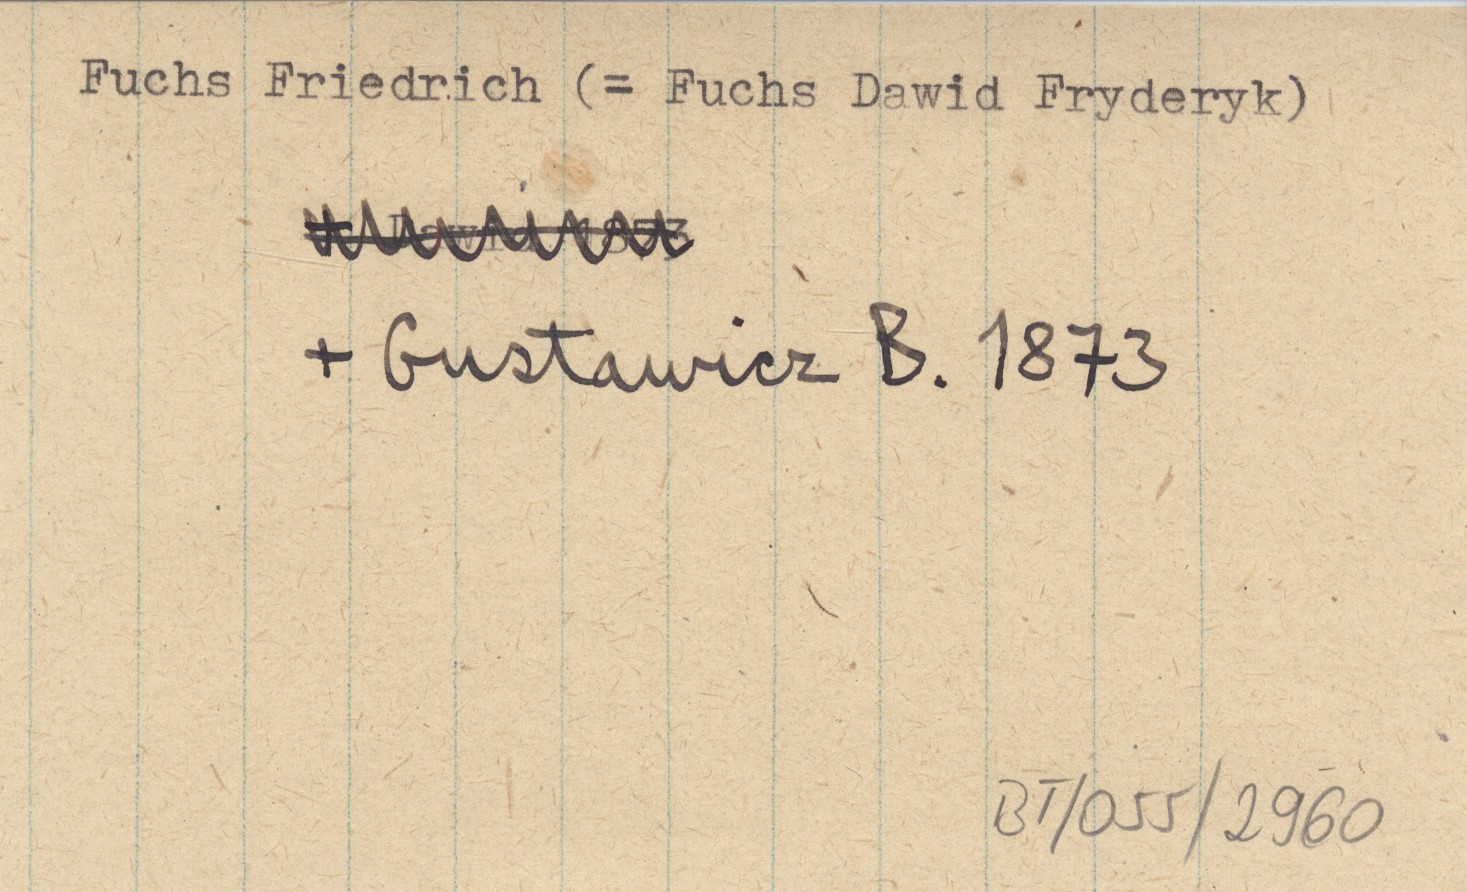 Fuchs Friedrich (= Fuchs Dawid Fryderyk)
+ Gustawicz B. 1873
BT/055/2960